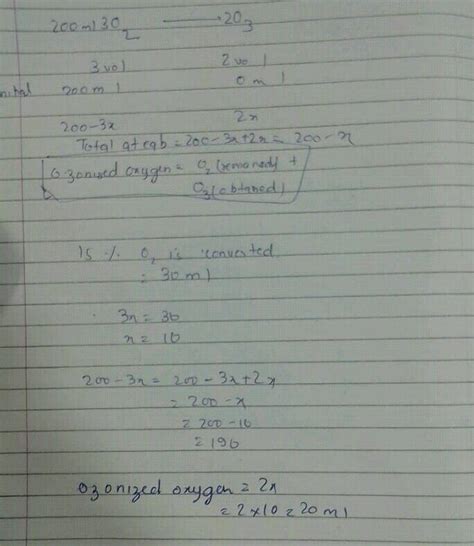 200ml 3O2 → 2O3
3 vol 2 vol
nitial 200ml 0 ml
200-3x 2x
Total at eqb = 200-3x+2x = 200-x
Ozonized oxygen = O2 (remained) +
O3 (obtained)
15 % O2 is converted
= 30 ml
3x = 30
x = 10
200-3x = 200-3x+2x
= 200-x
= 200-10
= 190
Ozonized oxygen = 2x
= 2×10 = 20 ml